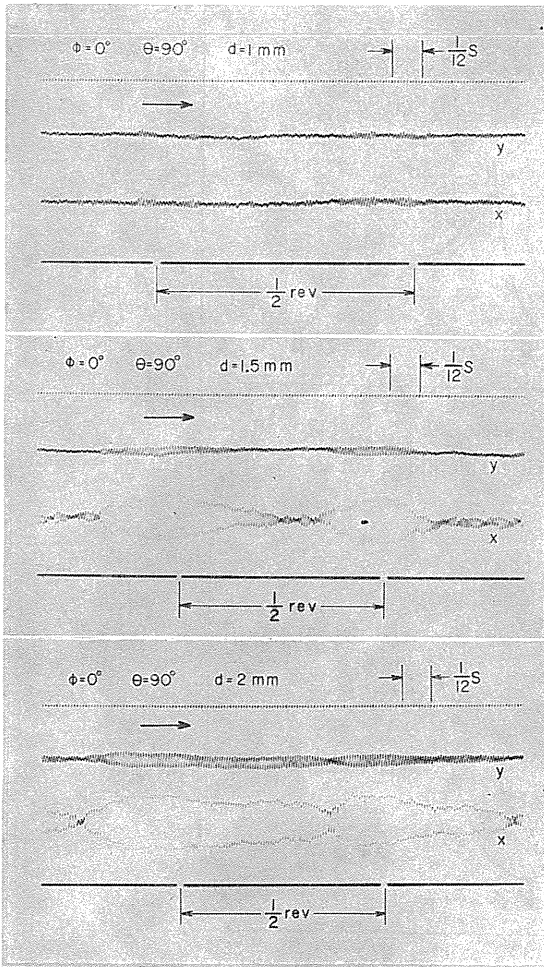 Φ=0° Θ=90° d=1mm 1/12 S
y
x
1/2 rev
Φ=0° Θ=90° d=1.5mm 1/12 S
y
x
1/2 rev
Φ=0° Θ=90° d=2mm 1/12 S
y
x
1/2 rev